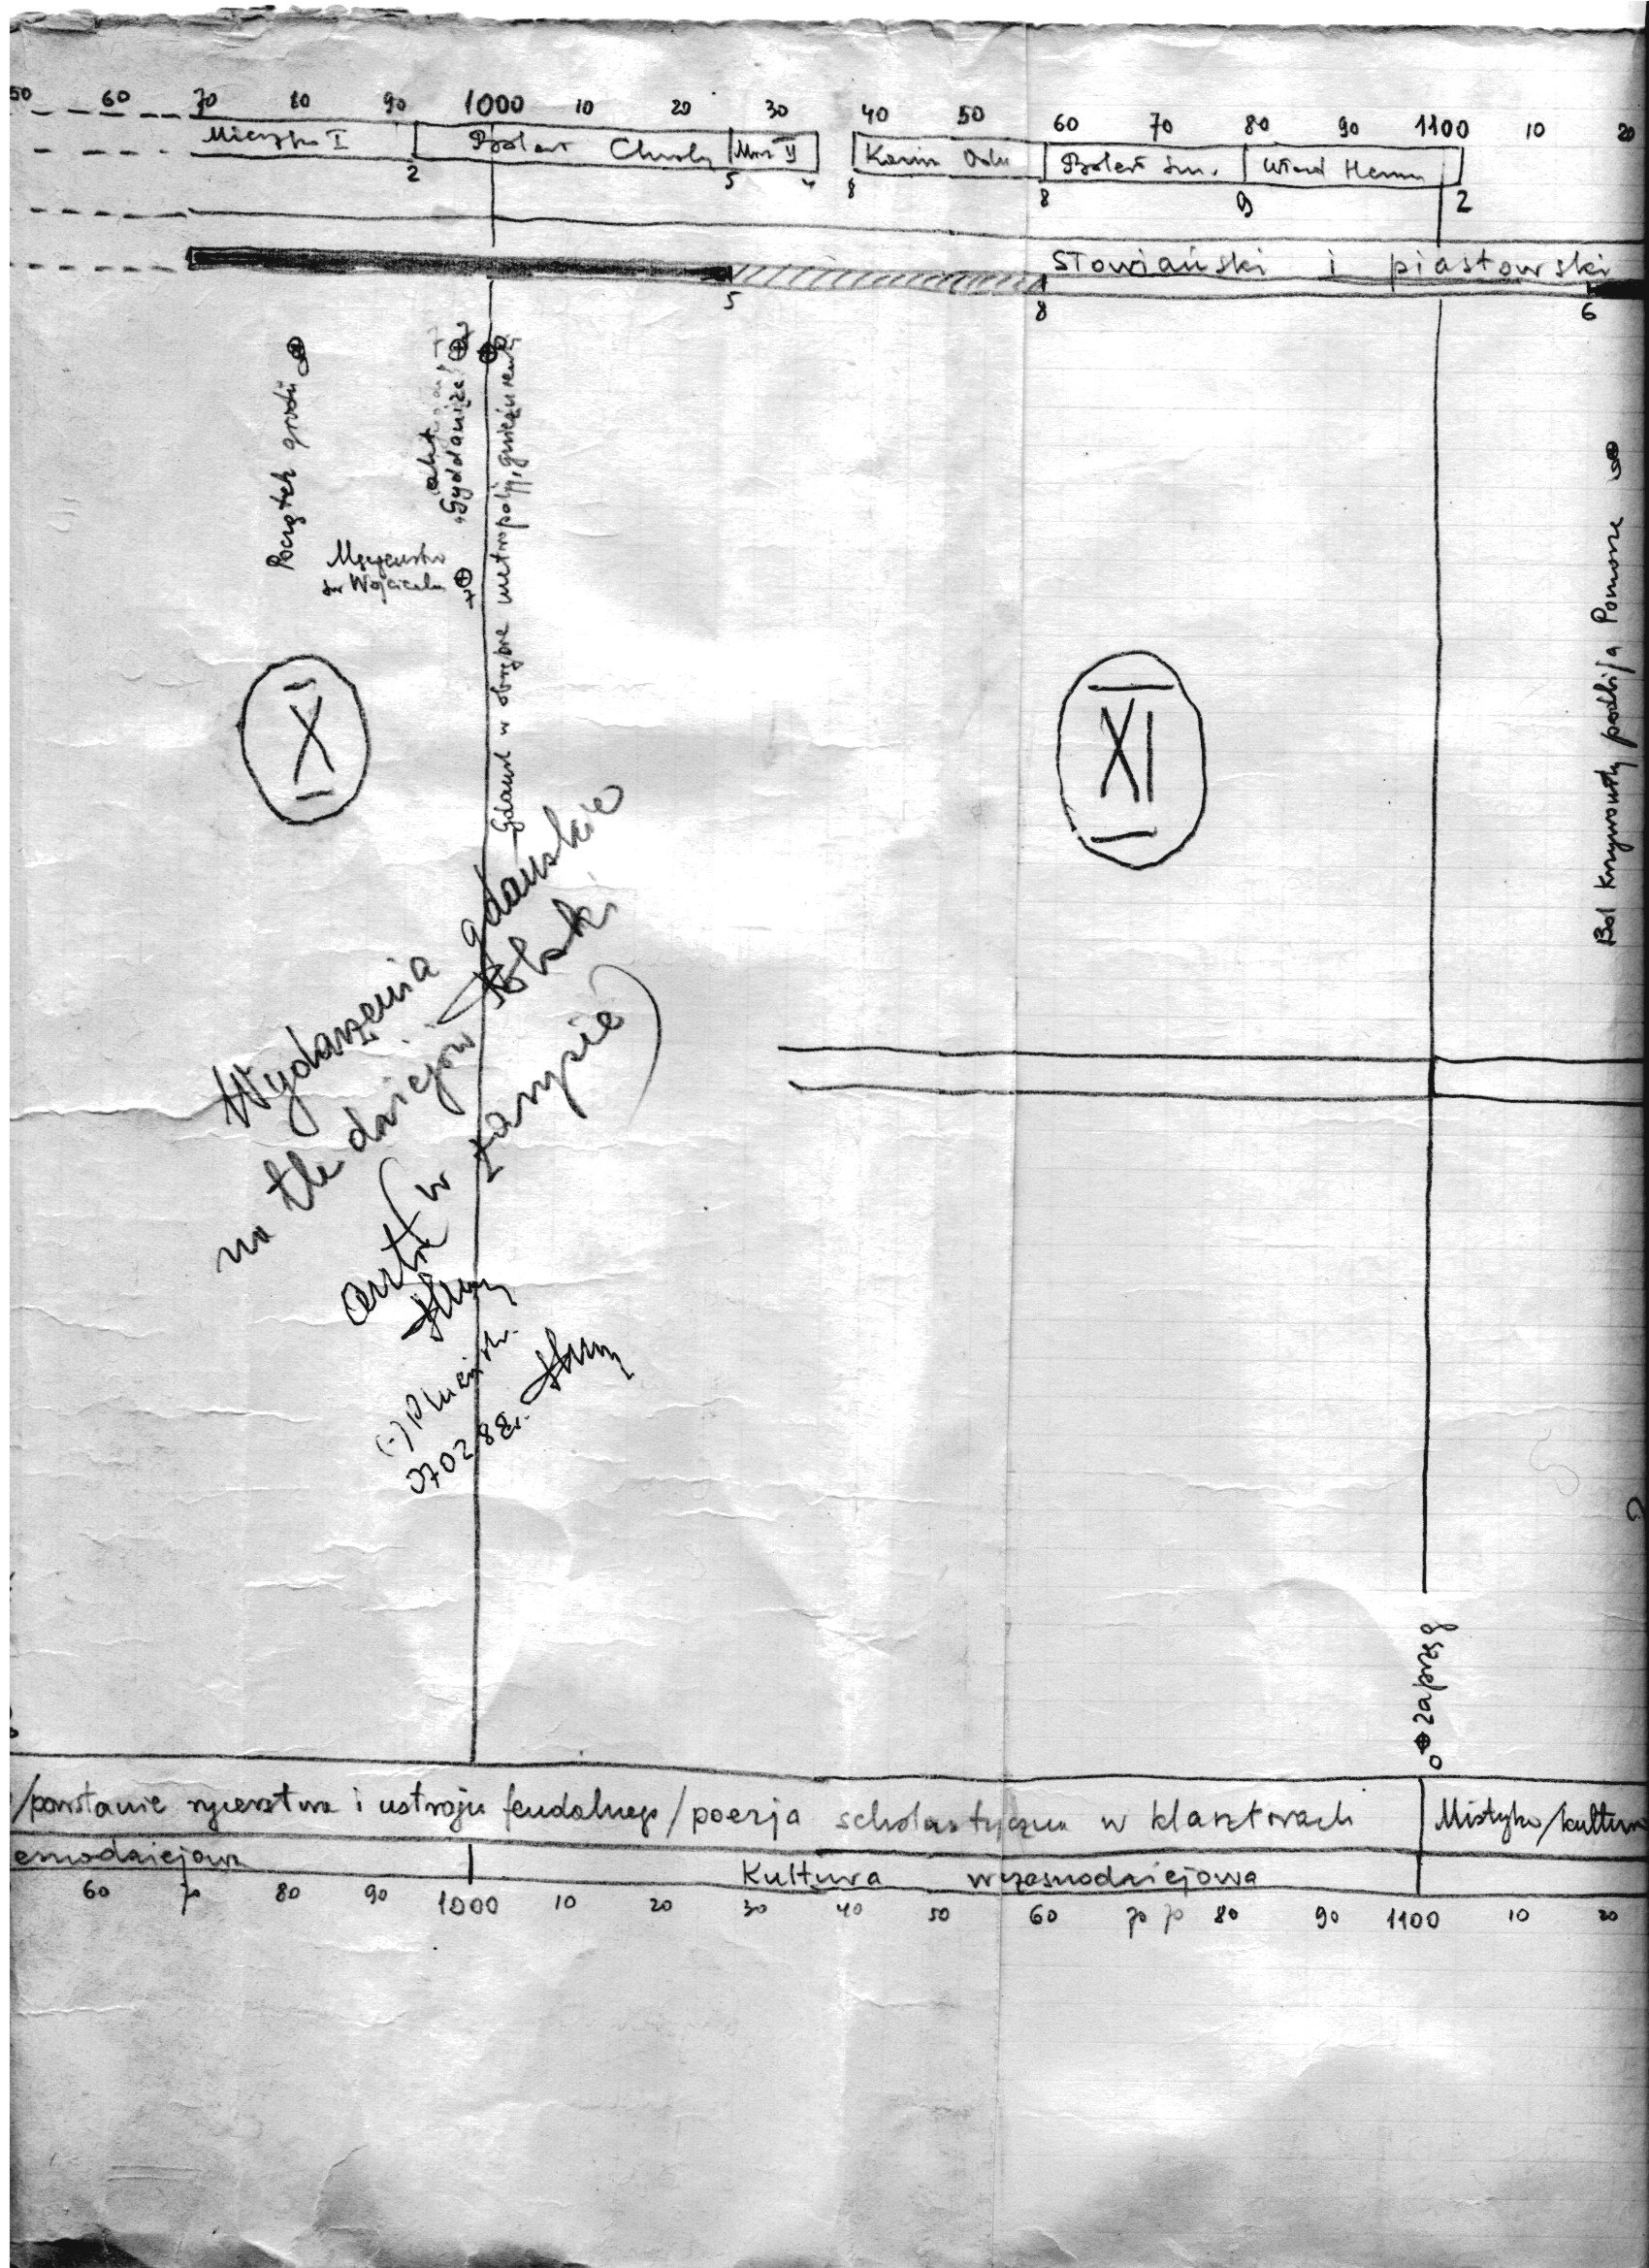 50 60 70 80 90 1000 10 20 30 40 50 60 70 80 90 1100 10 20
Mieszko I
Bolesł Chrobry
Miesz II
Kazim Odn
Bolesł Śm.
Wład Herm
2 5 4 8 8 9 2
Słowiański i piastowski
5 8 6
Początek grodu
"Gyddanizc"
7
Męczeństwo
św Wojciecha
7
Gdańsk w obrębie metropolii gnieźnieńs
X
XI
Bol Krzywousty podbija Pomorze
Wydarzenia gdańskie
na tle dziejów Polski
(w zarysie)
0 zaprzęg
/powstanie rycerstwa i ustroju feudalnego/poezja scholastyczna w klasztorach
Mistyka/kultura
esnodziejowa
Kultura wczesnodziejowa
60 70 80 90 1000 10 20 30 40 50 60 70 70 80 90 1100 10 20